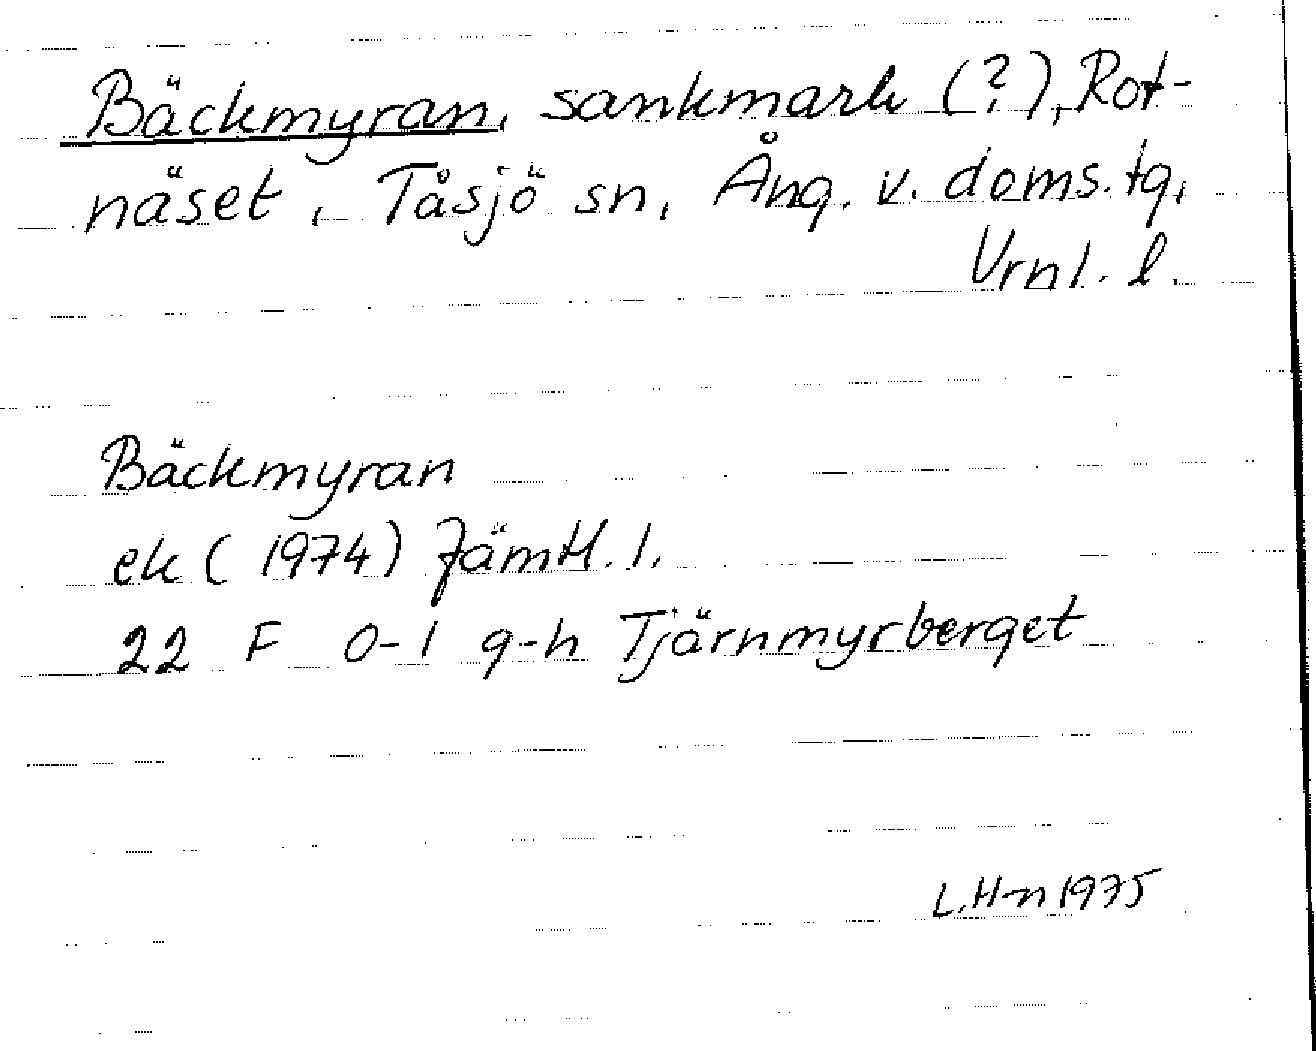 Bäckmyran, sankmark (?), Rot-
näset, Tåsjö sn, Ång. v. doms. tg,
Vrnl. l.
Bäckmyran
ek (1974) Jämtl. l.
22 F 0-1 g-h Tjärnmyrberget
L.H-n 1975